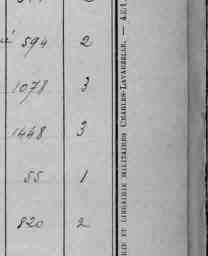 594 2
1078 3
1448 3
55 1
820 2
RIE ET LIBRAIRIE MILITAIRES CHARLES-LAVAUZELLE. —